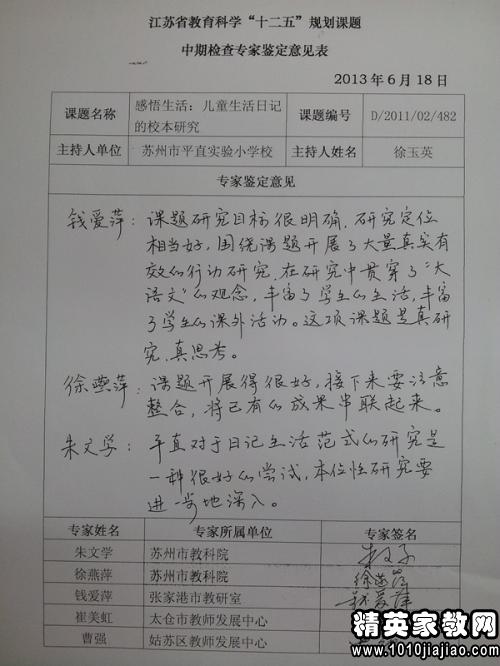 江苏省教育科学“十二五”规划课题
中期检查专家鉴定意见表
2013年6月18日
课题名称 感悟生活：儿童生活日记的校本研究 课题编号 D/2011/02/482
主持人单位 苏州市平直实验小学校 主持人姓名 徐玉英
专家鉴定意见
钱爱萍：课题研究目标很明确，研究定位
相当好，围绕课题开展了大量真实有
效的行动研究，在研究中贯穿了“大
语文”的观念，丰富了学生的生活，丰富
了学生的课外活动。这项课题是真研
究，真思考。
徐燕萍：课题开展得很好，接下来要注意
整合，将已有的成果串联起来。
朱文学：平直对于日记生活范式的研究是
一种很好的尝试，本位性研究要
进一步地深入。
专家姓名 专家所属单位 专家签名
朱文学 苏州市教科院
徐燕萍 苏州市教科院 徐燕萍
钱爱萍 张家港市教研室 钱爱萍
崔美虹 太仓市教师发展中心
曹强 姑苏区教师发展中心
精英家教网
www.1010jiajiao.com